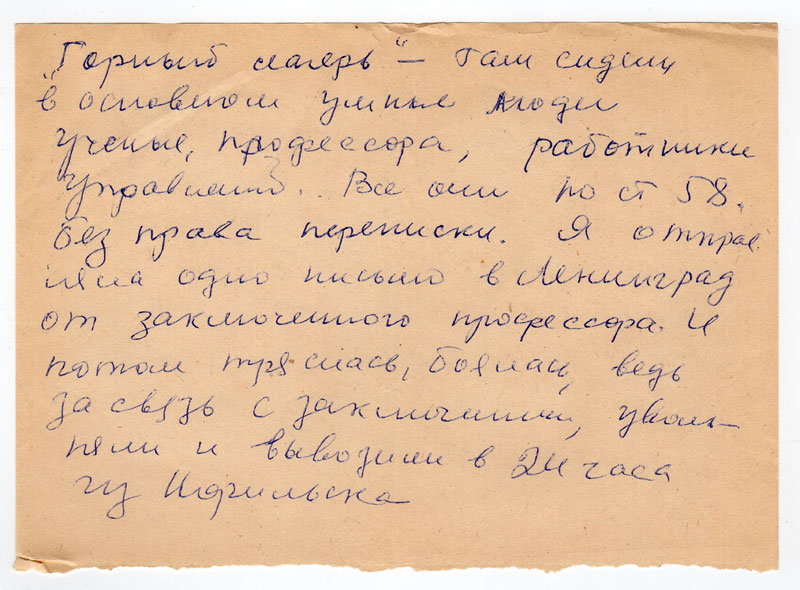 "Горный лагерь" – там сидели
в основном умные люди
ученые, профессора, работники
управлений. Все они по ст 58.
без права переписки. Я отправ
ляла одно письмо в Ленинград
от заключенного профессора. И
потом тряслась, боялась, ведь
за связь с заключенными, уволь-
няли и вывозили в 24 часа
из Норильска